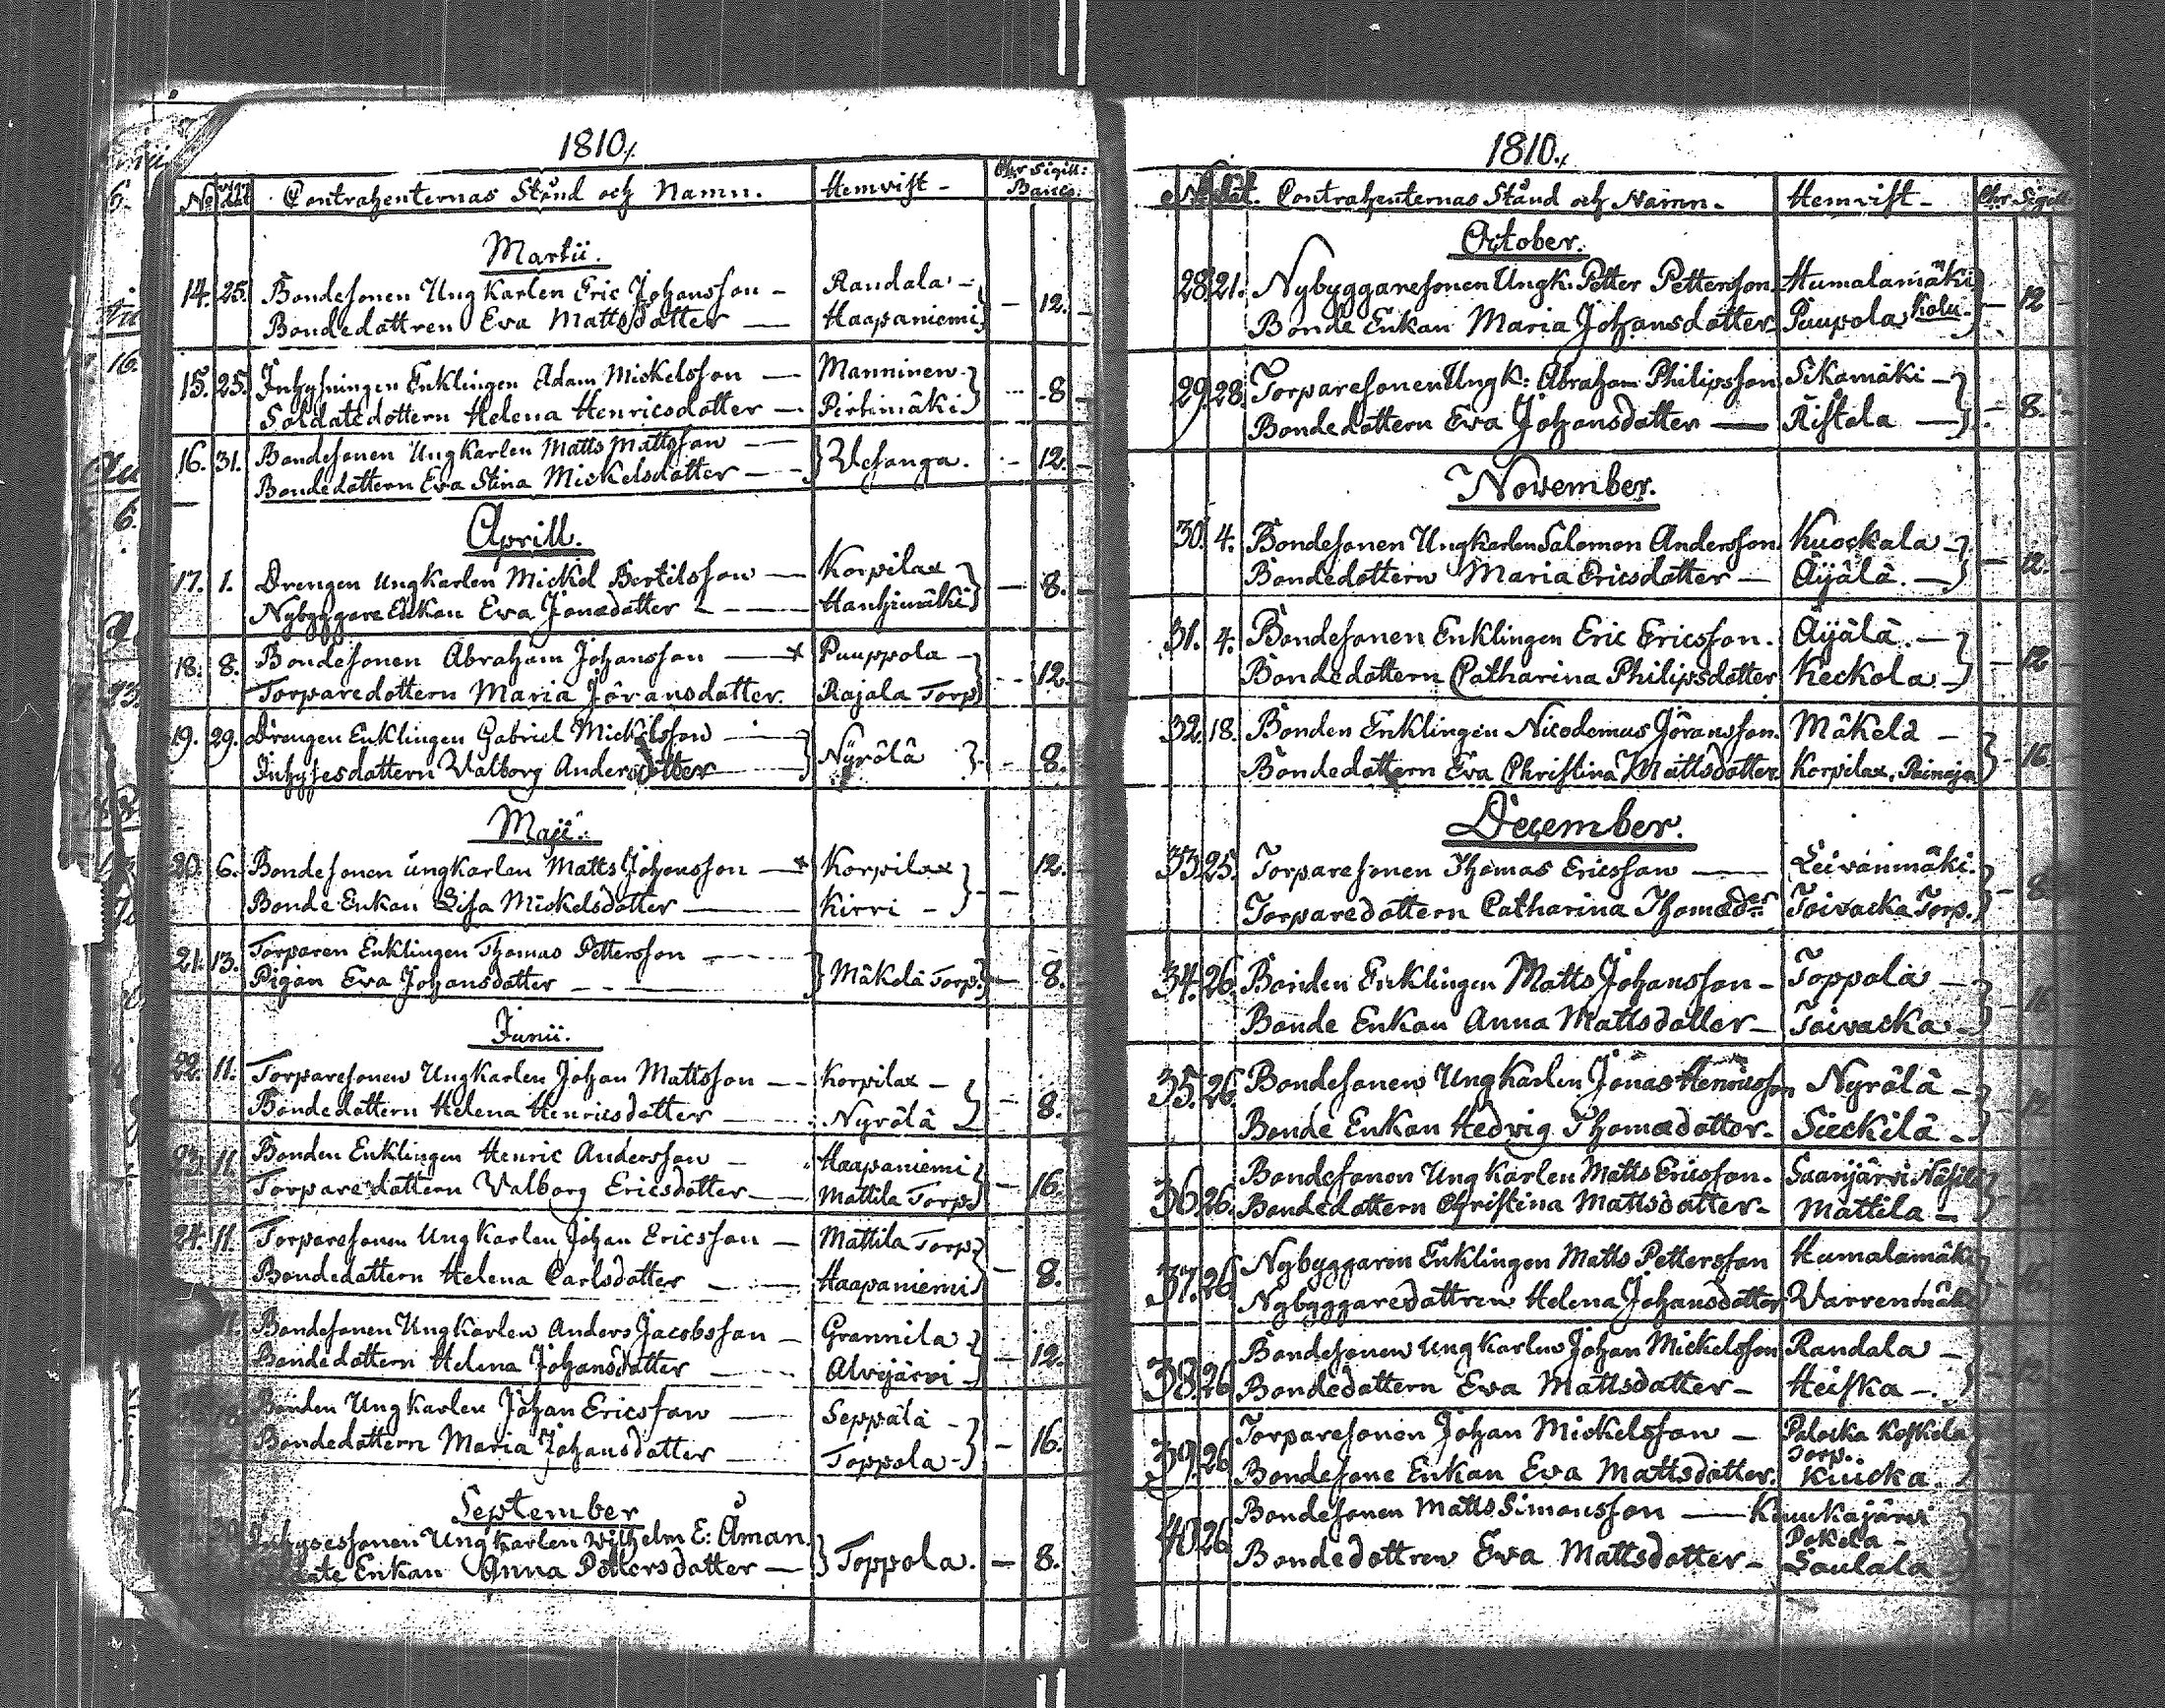 1810.
No vig. dat. Contrahenternas Stånd och Namn. Hemvist - Chr Sigill: Banco.
Martii.
14. 25. Bondesonen Ungkarlen Eric Johansson - Randala - 12.
Bondedottren Eva Mattsdotter — Haapaniemi
15. 25. Inhysningen Enklingen Adam Mickelsson — Manninen - 8
Soldatedottern Helena Henricsdotter — Pirtimäki
16. 31. Bondesonen Ungkarlen Matts Mattsson — Vesanga. - 12.
Bondedottern Eva Stina Mickelsdotter —
Aprill.
17. 1. Drengen Ungkarlen Mickel Bertilsson — Korpilax — 8.
Nybyggare Enkan Eva Jonædotter — Hanhimäki
18. 8. Bondesonen Abraham Johansson — x Puuppola - 12.
Torparedottern Maria Jöransdotter. Rajala Torp
19. 29. Drengen Enklingen Gabriel Mickelsson — Nyrölä - 8.
Inhysesdottern Valborg Andersdotter
Maji.
20. 6. Bondesonen Ungkarlen Matts Johansson — x Korpilax - 12.
Bonde Enkan Lisa Mickelsdotter — Kirri -
21. 13. Torparen Enklingen Thomas Pettersson — Mäkelä Torp - 8.
Pigan Eva Johansdotter —
Junii.
22. 11. Torparesonen Ungkarlen Johan Mattsson — Korpilax - 8.
Bondedottern Helena Henricsdotter — Nyrölä
23. 11. Bonden Enklingen Henric Andersson - Haapaniemi - 16.
Torparedottern Valborg Ericsdotter — Mattila Torp
24. 11. Torparesonen Ungkarlen Johan Ericsson — Mattila Torp - 8.
Bondedottern Helena Carlsdotter — Haapaniemi
11. Bondesonen Ungkarlen Anders Jacobsson — Grannila - 12.
Bondedottern Helena Johansdotter — Alvejärvi -
Bonden Ungkarlen Johan Ericsson — Seppälä - 16.
Bondedottern Maria Johansdotter — Toppola -
September
Inhysessonen Ungkarlen Wilhelm E: Åman Toppola. - 8.
Enkan Anna Pettersdotter —
1810.
No dat. Contrahenternas Stånd och Namn. Hemvist - Chr Sigill
October.
28 21. Nybyggaresonen Ungk. Petter Pettersson Humalamäki - 12
Bonde Enkan Maria Johansdotter Puupola Kolu.
29. 28. Torparesonen Ungk: Abraham Philipsson Sikamäki - 8.
Bondedottern Eva Johansdotter — Ristola —
November.
30. 4. Bondesonen Ungkarlen Salomon Andersson Kuockala - 12.
Bondedottern Maria Ericsdotter — Äijälä. —
31. 4. Bondesonen Enklingen Eric Ericsson. Äijälä. — 12
Bondedottern Catharina Philipsdotter Keckola -
32. 18. Bonden Enklingen Nicodemus Jöransson. Mäkelä - 16.
Bondedottern Eva Christina Mattsdotter Korpilax,
December.
33. 25. Torparesonen Thomas Ericsson — Leivänmäki. - 8
Torparedottern Catharina Thomæd:r Toivacka Torp.
34. 26. Bonden Enklingen Matts Johansson - Toppola - 16
Bonde Enkan Anna Mattsdotter - Toivacka -
35. 26 Bondesonen Ungkarlen Jonas Henricsson Nyrölä - 12
Bonde Enkan Hedvig Thomædotter. Sieckilä -
36. 26. Bondesonen Ungkarlen Matts Ericsson. Saarijärvi
Bondedottern Christina Mattsdotter - Mattila -
37. 26 Nybyggaren Enklingen Matts Pettersson Humalamäki
Nybyggaredottren Helena Johansdotter
38. 26 Bondesonen Ungkarlen Johan Mickelsson Randala - 12.
Bondedottern Eva Mattsdotter - Heiska -
39. 26 Torparesonen Johan Mickelsson - Palocka Koskela
Torp.
Bondesone Enkan Eva Mattsdotter. Kiucka.
40 26 Bondesonen Matts Simonsson — Kuukajärvi
Pekela -
Bondedottren Eva Mattsdotter - Laulala